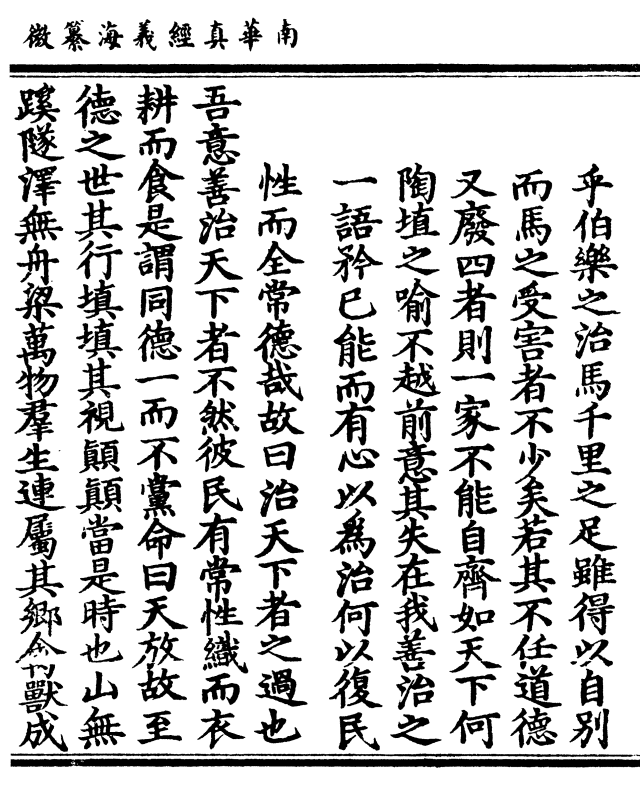 南華真經義海纂微
乎伯樂之治馬千里之足雖得以自别
而馬之受害者不少矣若其不任道德
又廢四者則一家不能自齊如天下何
陶埴之喻不越前意其失在我善治之
一語矜已能而有心以為治何以復民
性而全常德哉故曰治天下者之過也
吾意善治天下者不然彼民有常性織而衣
耕而食是謂同德一而不黨命曰天放故至
德之世其行填填其視顛顛當是時也山無
蹊隧澤無舟梁萬物羣生連屬其鄉禽獸成